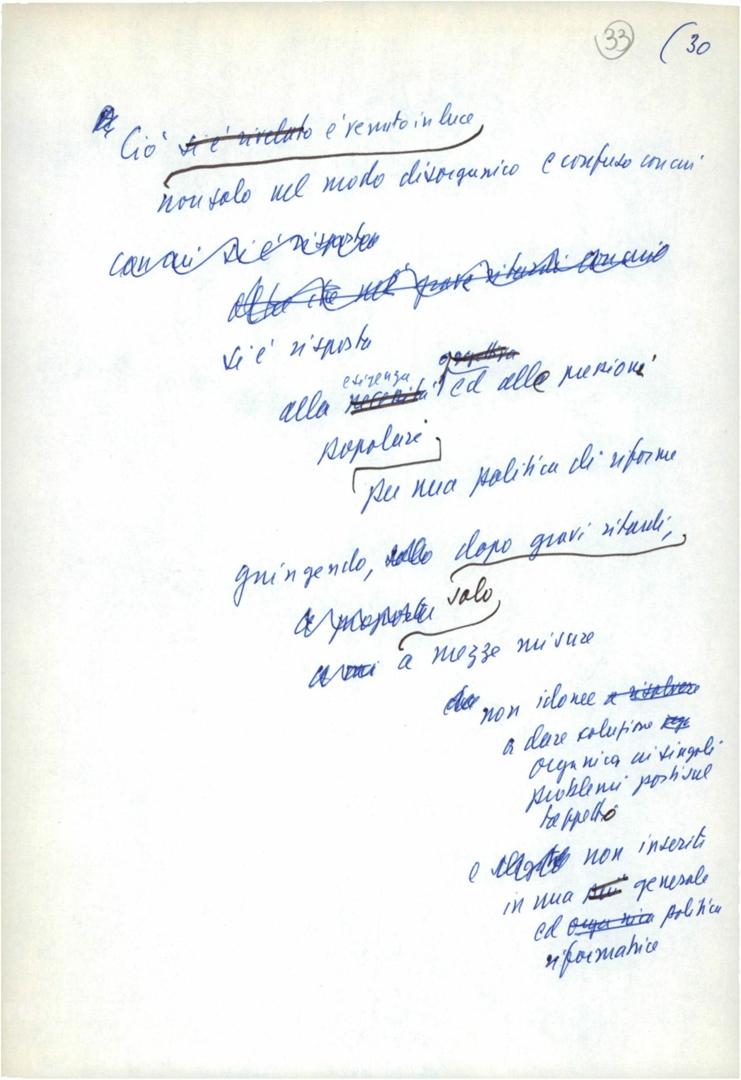 33 (30
Ciò si è rivelato è venuto in luce
non solo nel modo disorganico e confuso con cui
con cui si è risposto
si è risposto
esigenza
alla necessità ed alle pressioni
popolari
per una politica di riforme
giungendo, solo dopo gravi ritardi,
a proposte solo
a mezze misure
che non idonee a risolvere
a dare soluzione
organica ai singoli
problemi posti sul
tappeto
e non inseriti
in una più generale
ed organica politica
riformatrice